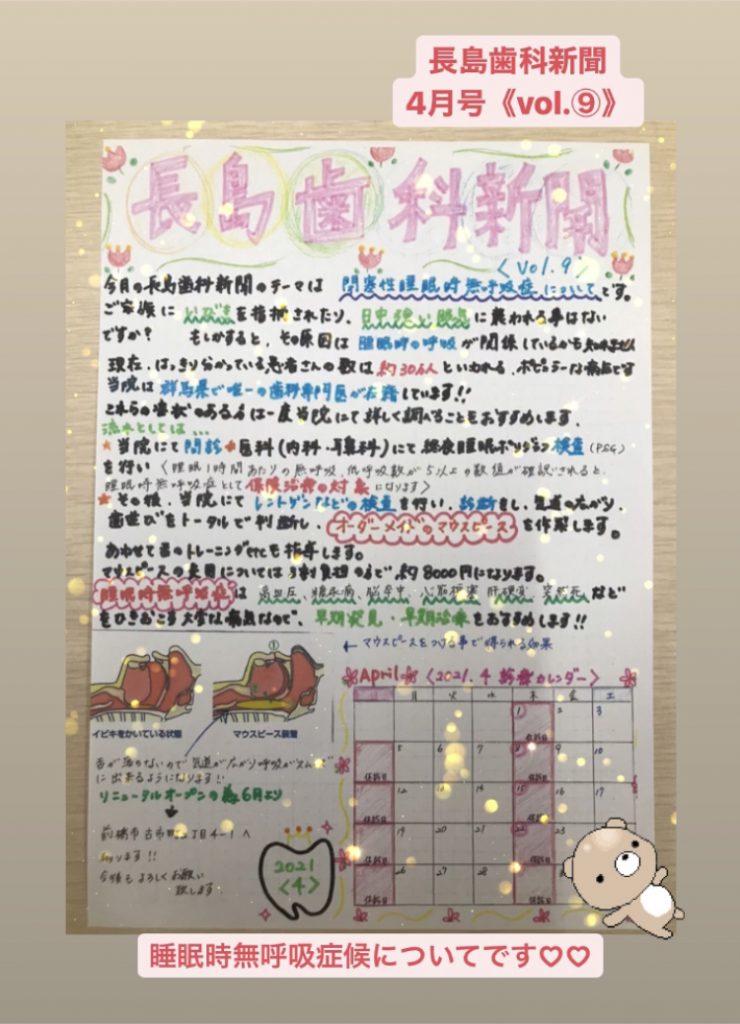 長島歯科新聞
4月号《vol.⑨》
長島歯科新聞
〈vol.9〉
今月の長島歯科新聞のテーマは 閉塞性睡眠時無呼吸症についてです。
ご家族にいびきを指摘されたり、日中強い眠気に襲われる事はない
ですか? もしかすると、その原因は睡眠時の呼吸が関係しているかも知れません
現在、はっきり分かっている患者さんの数は約30万人といわれる、ポピュラーな病気です
当院は群馬県で唯一の歯科専門医が在籍しています!!
これらの症状のある方は一度当院にて詳しく調べることをおすすめします。
流れとしては...
★当院にて問診★医科(内科・耳鼻科)にて終夜睡眠ポリグラフ検査(PSG)
を行い〈睡眠1時間あたりの無呼吸、低呼吸数が5以上の数値が確認されると、
睡眠時無呼吸症として保険治療の対象になります〉
★その後、当院にてレントゲンなどの検査を行い、診断をし、気道の広がり、
歯並びをトータルで判断し、オーダーメイドのマウスピースを作製します。
あわせて舌のトレーニングetcも指導します。
マウスピースの費用については3割負担の方で約8000円になります。
睡眠時無呼吸症は高血圧、糖尿病、脳卒中、心筋梗塞、肝硬変、突然死など
をひきおこす大変な病気なので、早期発見・早期治療をおすすめします!!
←マウスピースをつける事で得られる効果
①
イビキをかいている状態
マウスピース装着
舌が落ちないので気道が広がり呼吸がスムーズ
に出来るようになります!!
リニューアルオープンの為6月より
前橋市古市町 丁目4-1へ
なります!!
今後もよろしくお願い
致します
2021
〈4〉
April 〈2021.4 診療カレンダー〉
月 火 水 木 金 土
1 2 3
4 5 6 7 8 9 10
11 12 13 14 15 16 17
19 20 21 22 23
26 27 28
睡眠時無呼吸症候についてです♡♡